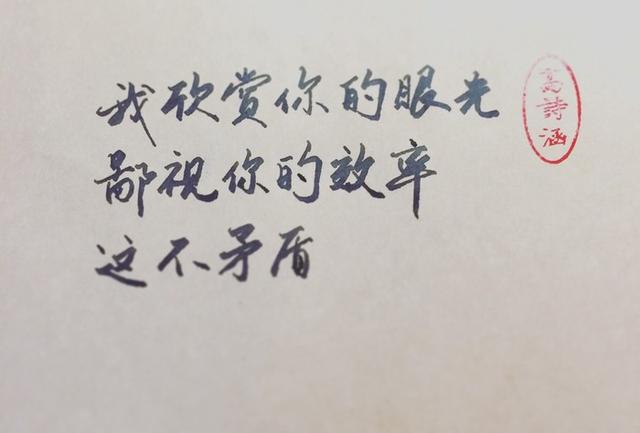 我欣赏你的眼光
鄙视你的效率
这不矛盾
高詩涵